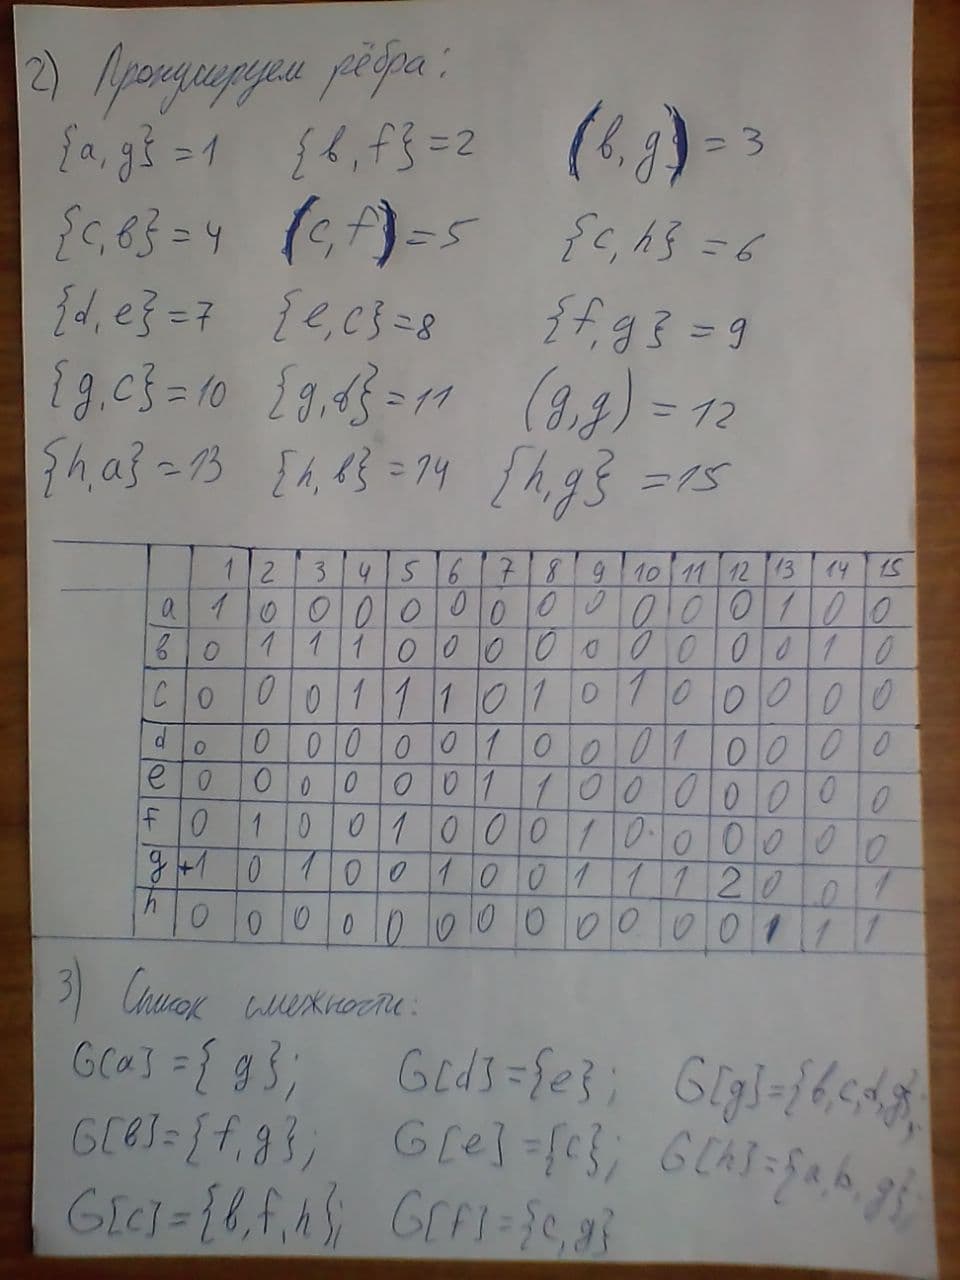 2) Пронумеруем рёбра:
{a, g} = 1 {b, f} = 2 (b, g) = 3
{c, b} = 4 (c, f) = 5 {c, h} = 6
{d, e} = 7 {e, c} = 8 {f, g} = 9
{g, c} = 10 {g, d} = 11 (g, g) = 12
{h, a} = 13 {h, b} = 14 {h, g} = 15
1 2 3 4 5 6 7 8 9 10 11 12 13 14 15
a 1 0 0 0 0 0 0 0 0 0 0 0 1 0 0
b 0 1 1 1 0 0 0 0 0 0 0 0 0 1 0
c 0 0 0 1 1 1 0 1 0 1 0 0 0 0 0
d 0 0 0 0 0 0 1 0 0 0 1 0 0 0 0
e 0 0 0 0 0 0 1 1 0 0 0 0 0 0 0
f 0 1 0 0 1 0 0 0 1 0 0 0 0 0 0
g +1 0 1 0 0 1 0 0 1 1 1 2 0 0 1
h 0 0 0 0 0 0 0 0 0 0 0 0 1 1 1
3) Список смежности:
G[a] = { g}; G[d] = {e}; G[g] = {b, c, d, g};
G[b] = {f, g}; G[e] = {c}; G[h] = {a, b, g};
G[c] = {b, f, h}; G[f] = {c, g}